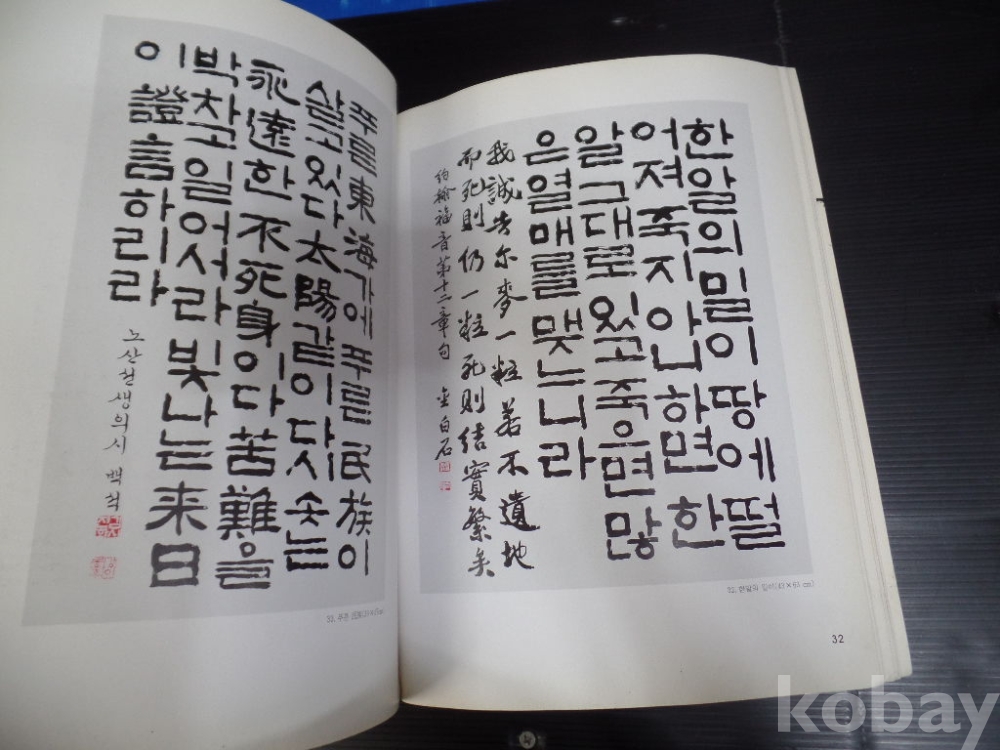 한알의밀이땅에떨
어져죽지아니하면한
알그대로있고죽으면많
은열매를맺느니라
我誠告尔麥一粒若不遺地
而死則仍一粒死则结實繁矣
约翰福音第十二章句 金白石
32. 한알의 밀이
32
푸른東海가에푸른民族이
살고있다太陽같이다시솟는
永遠한不死身이다苦難을
박차고일어서라빛나는来日
이證言하리라
노산선생의시 백석
33. 푸른
kobay